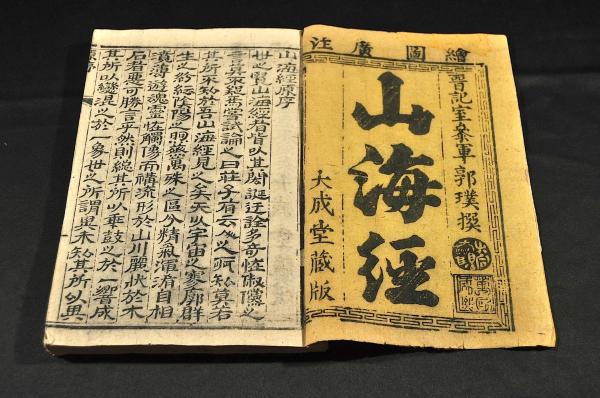 繪圖廣注
晉記室參軍郭璞撰
山海經
大成堂藏版
山海經原序
世之覽山海經者皆以其閎誕迂誇多奇怪俶儻之
言莫不疑焉嘗試論之曰莊子有云人之所知莫若
其所不知於吾山海經見之矣夫以宇宙之寥廓群
生之紛紜陰陽之煦蒸萬殊之區分精氣渾淆自相
濆薄遊魂靈怪觸像而構流形於山川麗狀於木
石者惡可勝言乎然則總其所以乖鼓之於一響成
其所以變混之於一象世之所謂異未知其所以異